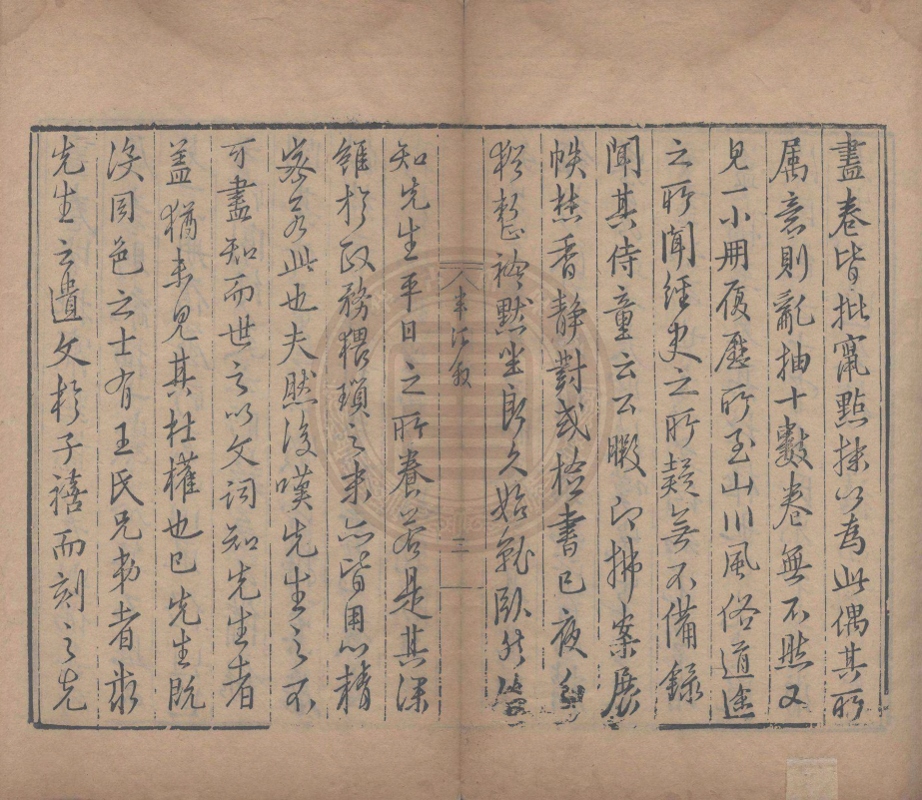 盡卷皆批竄點抹以為此偶其所
屬意則亂抽十數卷無不然又
見一小冊履歷所至山川風俗道途
之所聞經史之所疑無不備錄
聞其侍童云公暇即拂案展
帙焚香靜對或檢書已夜分
猶整襟默坐良久始就臥然後
敘
三
知先生平日之所養若是其深
雖於政務猥瑣之末亦皆用心精
密若此也夫然後嘆先生之不
可盡知而世之以文詞知先生者
蓋猶未見其杜權也已先生既
沒同邑之士有王氏兄弟者求
先生之遺文於子禧而刻之先